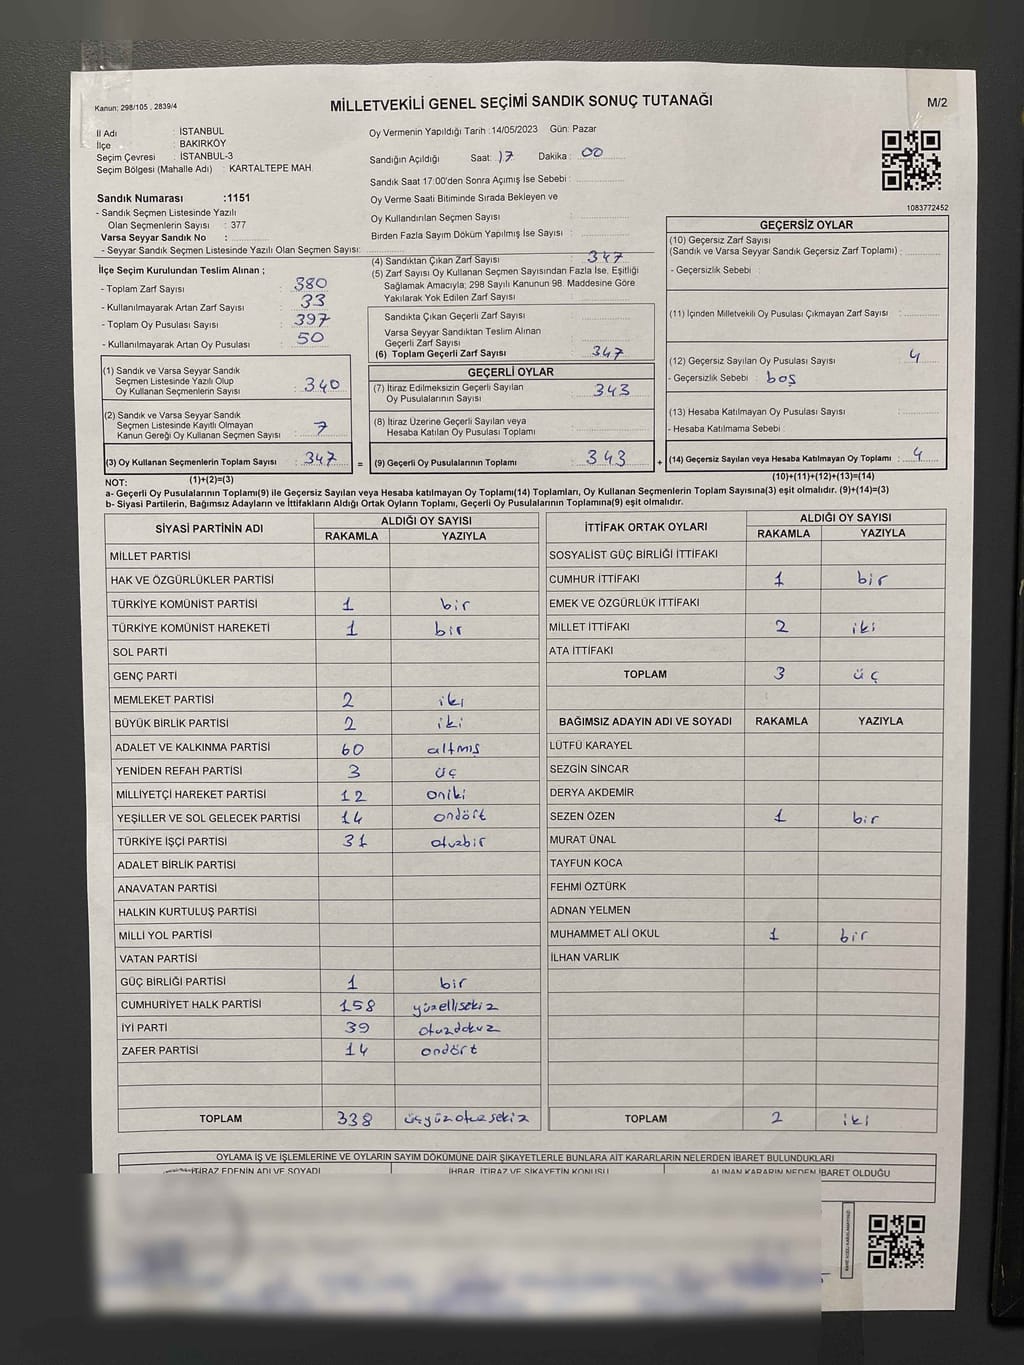 Kanun: 298/105 , 2839/4
MİLLETVEKİLİ GENEL SEÇİMİ SANDIK SONUÇ TUTANAĞI
M/2
İl Adı : İSTANBUL
İlçe : BAKIRKÖY
Seçim Çevresi : İSTANBUL-3
Seçim Bölgesi (Mahalle Adı) : KARTALTEPE MAH
Oy Vermenin Yapıldığı Tarih :14/05/2023 Gün: Pazar
Sandığın Açıldığı Saat: 17 Dakika : 00
Sandık Saat 17:00'den Sonra Açımış İse Sebebi :
Oy Verme Saati Bitiminde Sırada Bekleyen ve
Oy Kullandırılan Seçmen Sayısı :
Birden Fazla Sayım Döküm Yapılmış İse Sayısı :
1083772452
Sandık Numarası :1151
- Sandık Seçmen Listesinde Yazılı
Olan Seçmenlerin Sayısı : 377
Varsa Seyyar Sandık No :
- Seyyar Sandık Seçmen Listesinde Yazılı Olan Seçmen Sayısı:
İlçe Seçim Kurulundan Teslim Alınan ;
- Toplam Zarf Sayısı : 380
- Kullanılmayarak Artan Zarf Sayısı : 33
- Toplam Oy Pusulası Sayısı : 397
- Kullanılmayarak Artan Oy Pusulası : 50
(1) Sandık ve Varsa Seyyar Sandık
Seçmen Listesinde Yazılı Olup
Oy Kullanan Seçmenlerin Sayısı : 340
(2) Sandık ve Varsa Seyyar Sandık
Seçmen Listesinde Kayıtlı Olmayan
Kanun Gereği Oy Kullanan Seçmen Sayısı : 7
(3) Oy Kullanan Seçmenlerin Toplam Sayısı : 347
(1)+(2)=(3)
(4) Sandıktan Çıkan Zarf Sayısı : 347
(5) Zarf Sayısı Oy Kullanan Seçmen Sayısından Fazla İse, Eşitliği
Sağlamak Amacıyla; 298 Sayılı Kanunun 98. Maddesine Göre
Yakılarak Yok Edilen Zarf Sayısı :
Sandıkta Çıkan Geçerli Zarf Sayısı :
Varsa Seyyar Sandıktan Teslim Alınan
Geçerli Zarf Sayısı :
(6) Toplam Geçerli Zarf Sayısı : 347
GEÇERLİ OYLAR
(7) İtiraz Edilmeksizin Geçerli Sayılan
Oy Pusulalarının Sayısı : 343
(8) İtiraz Üzerine Geçerli Sayılan veya
Hesaba Katılan Oy Pusulası Toplamı :
= (9) Geçerli Oy Pusulalarının Toplamı : 343
GEÇERSİZ OYLAR
(10) Geçersiz Zarf Sayısı
(Sandık ve Varsa Seyyar Sandık Geçersiz Zarf Toplamı) :
- Geçersizlik Sebebi :
(11) İçinden Milletvekili Oy Pusulası Çıkmayan Zarf Sayısı :
(12) Geçersiz Sayılan Oy Pusulası Sayısı : 4
- Geçersizlik Sebebi : boş
(13) Hesaba Katılmayan Oy Pusulası Sayısı :
- Hesaba Katılmama Sebebi :
+ (14) Geçersiz Sayılan veya Hesaba Katılmayan Oy Toplamı : 4
(10)+(11)+(12)+(13)=(14)
NOT:
a- Geçerli Oy Pusulalarının Toplamı(9) ile Geçersiz Sayılan veya Hesaba katılmayan Oy Toplamı(14) Toplamları, Oy Kullanan Seçmenlerin Toplam Sayısına(3) eşit olmalıdır. (9)+(14)=(3)
b- Siyasi Partilerin, Bağımsız Adayların ve İttifakların Aldığı Ortak Oyların Toplamı, Geçerli Oy Pusulalarının Toplamına(9) eşit olmalıdır.
SİYASİ PARTİNİN ADI ALDIĞI OY SAYISI
RAKAMLA YAZIYLA
MİLLET PARTİSİ
HAK VE ÖZGÜRLÜKLER PARTİSİ
TÜRKİYE KOMÜNİST PARTİSİ 1 bir
TÜRKİYE KOMÜNİST HAREKETİ 1 bir
SOL PARTİ
GENÇ PARTİ
MEMLEKET PARTİSİ 2 iki
BÜYÜK BİRLİK PARTİSİ 2 iki
ADALET VE KALKINMA PARTİSİ 60 altmış
YENİDEN REFAH PARTİSİ 3 üç
MİLLİYETÇİ HAREKET PARTİSİ 12 oniki
YEŞİLLER VE SOL GELECEK PARTİSİ 14 ondört
TÜRKİYE İŞÇİ PARTİSİ 31 otuzbir
ADALET BİRLİK PARTİSİ
ANAVATAN PARTİSİ
HALKIN KURTULUŞ PARTİSİ
MİLLİ YOL PARTİSİ
VATAN PARTİSİ
GÜÇ BİRLİĞİ PARTİSİ 1 bir
CUMHURİYET HALK PARTİSİ 158 yüzellisekiz
İYİ PARTİ 39 otuzdokuz
ZAFER PARTİSİ 14 ondört
TOPLAM 338 üçyüzotuzsekiz
İTTİFAK ORTAK OYLARI ALDIĞI OY SAYISI
RAKAMLA YAZIYLA
SOSYALİST GÜÇ BİRLİĞİ İTTİFAKI
CUMHUR İTTİFAKI 1 bir
EMEK VE ÖZGÜRLÜK İTTİFAKI
MİLLET İTTİFAKI 2 iki
ATA İTTİFAKI
TOPLAM 3 üç
BAĞIMSIZ ADAYIN ADI VE SOYADI RAKAMLA YAZIYLA
LÜTFÜ KARAYEL
SEZGİN SİNCAR
DERYA AKDEMİR
SEZEN ÖZEN 1 bir
MURAT ÜNAL
TAYFUN KOCA
FEHMİ ÖZTÜRK
ADNAN YELMEN
MUHAMMET ALİ OKUL 1 bir
İLHAN VARLIK
TOPLAM 2 iki
OYLAMA İŞ VE İŞLEMLERİNE VE OYLARIN SAYIM DÖKÜMÜNE DAİR ŞİKAYETLERLE BUNLARA AİT KARARLARIN NELERDEN İBARET BULUNDUKLARI
İTİRAZ EDENİN ADI VE SOYADI İHBAR, İTİRAZ VE ŞİKAYETİN KONUSU ALINAN KARARIN NEDEN İBARET OLDUĞU